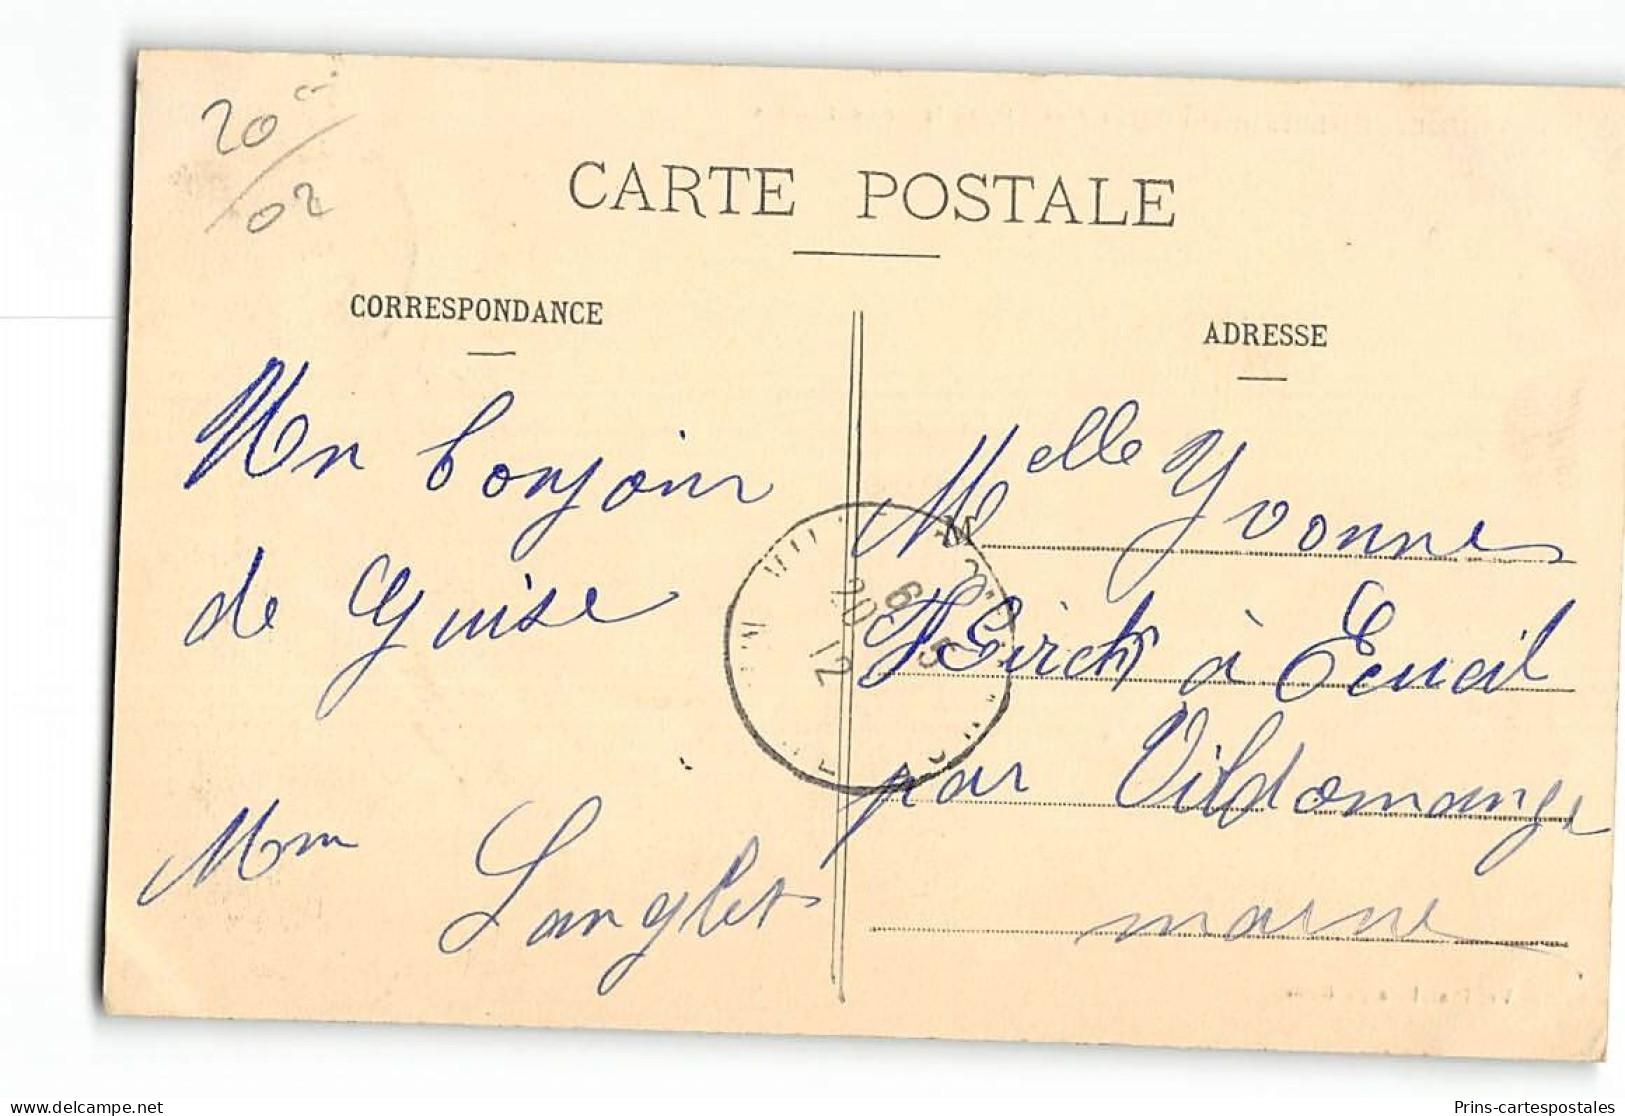 20
02
CARTE POSTALE
CORRESPONDANCE
ADRESSE
Un bonjour
de Guise
Mm Langlet
Melle Yvonne
M
à Ecueil
par Vildomange
marne
6 5
20 12
delcampe.net
Prins-cartespostales